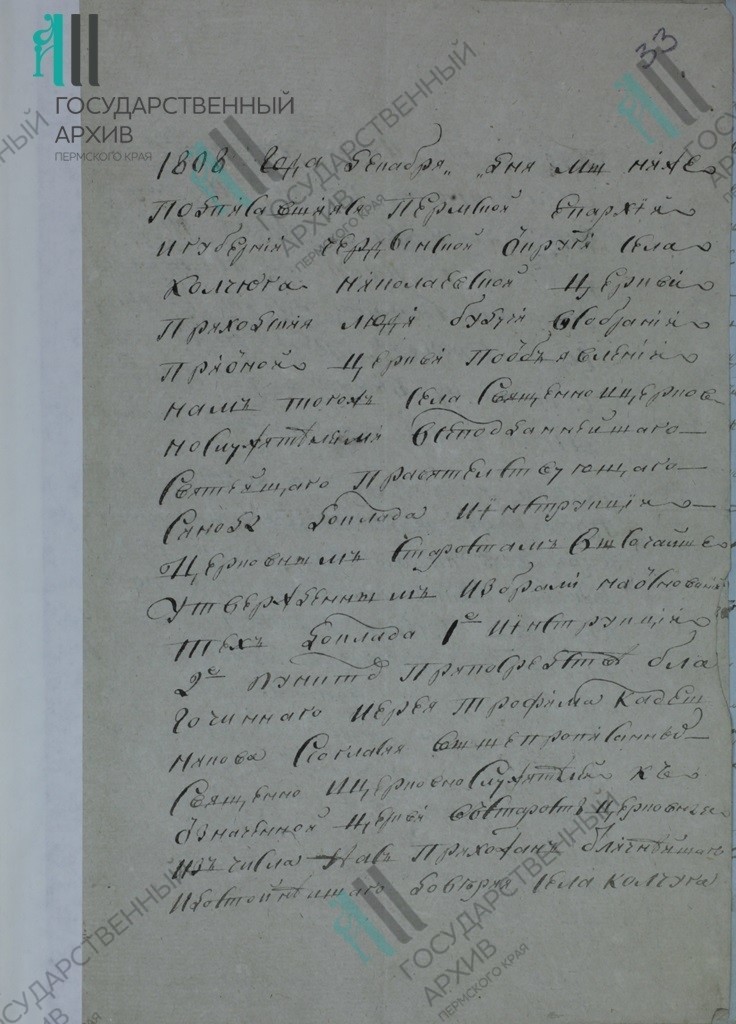 33
ГОСУДАРСТВЕННЫЙ
АРХИВ
ПЕРМСКОГО КРАЯ
1808 Года декабря „ „ дня мы ниже
подписавшияся Пермской епархии
и губернии Чердынской округи села
Колчюга Николаевской церкви
приходския люди будучи в собрании
при оной церкви по объявлении
намъ тогожъ села священно и церков-
нослужителями всеподданнейшаго
Святейшаго Правительствующаго
Синода доклада и инструкции
церковнымъ старостамъ высочайше
утвержденнымъ избрали на основании
техъ доклада 1е инструкции
2е пункта при посредстве бла
гочиннаго иерея Трофима
согласия вышепрописанныхъ
священно и церковнослужителей къ
означенной церкви в старосты церковные
изъ числа насъ прихожанъ
и достойнейшаго доверия села Колчуга